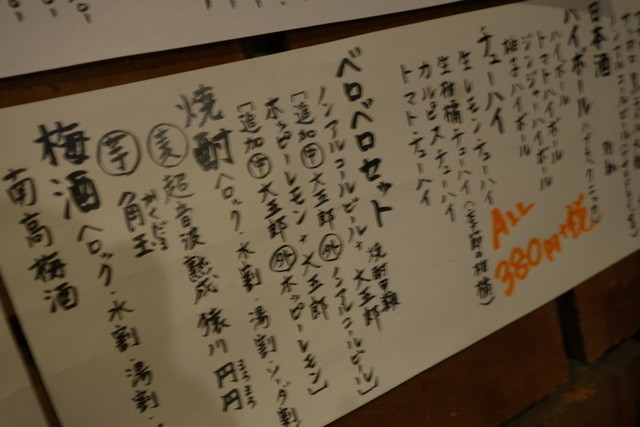 日本酒
ハイボール
ハイボール
トマトハイボール
ジンジャーハイボール
柚子ハイボール
チューハイ
生レモンチューハイ
生柑橘チューハイ(季節の柑橘)
カルピスチューハイ
トマトチューハイ
ALL
380円+税
ベロベロセット 焼酎甲類
ノンアルコールビール+大五郎
「追加㊥大五郎 ㊕ノンアルコールビール」
ホッピーレモン+大五郎
「追加㊥大五郎 ㊕ホッピーレモン」
焼酎 へロック・水割・湯割・ソーダ割
麦 超音波熟成 猿川 円円 まろまろ
芋 角玉 かくだま
梅酒 へロック・水割・湯割・
南高梅酒